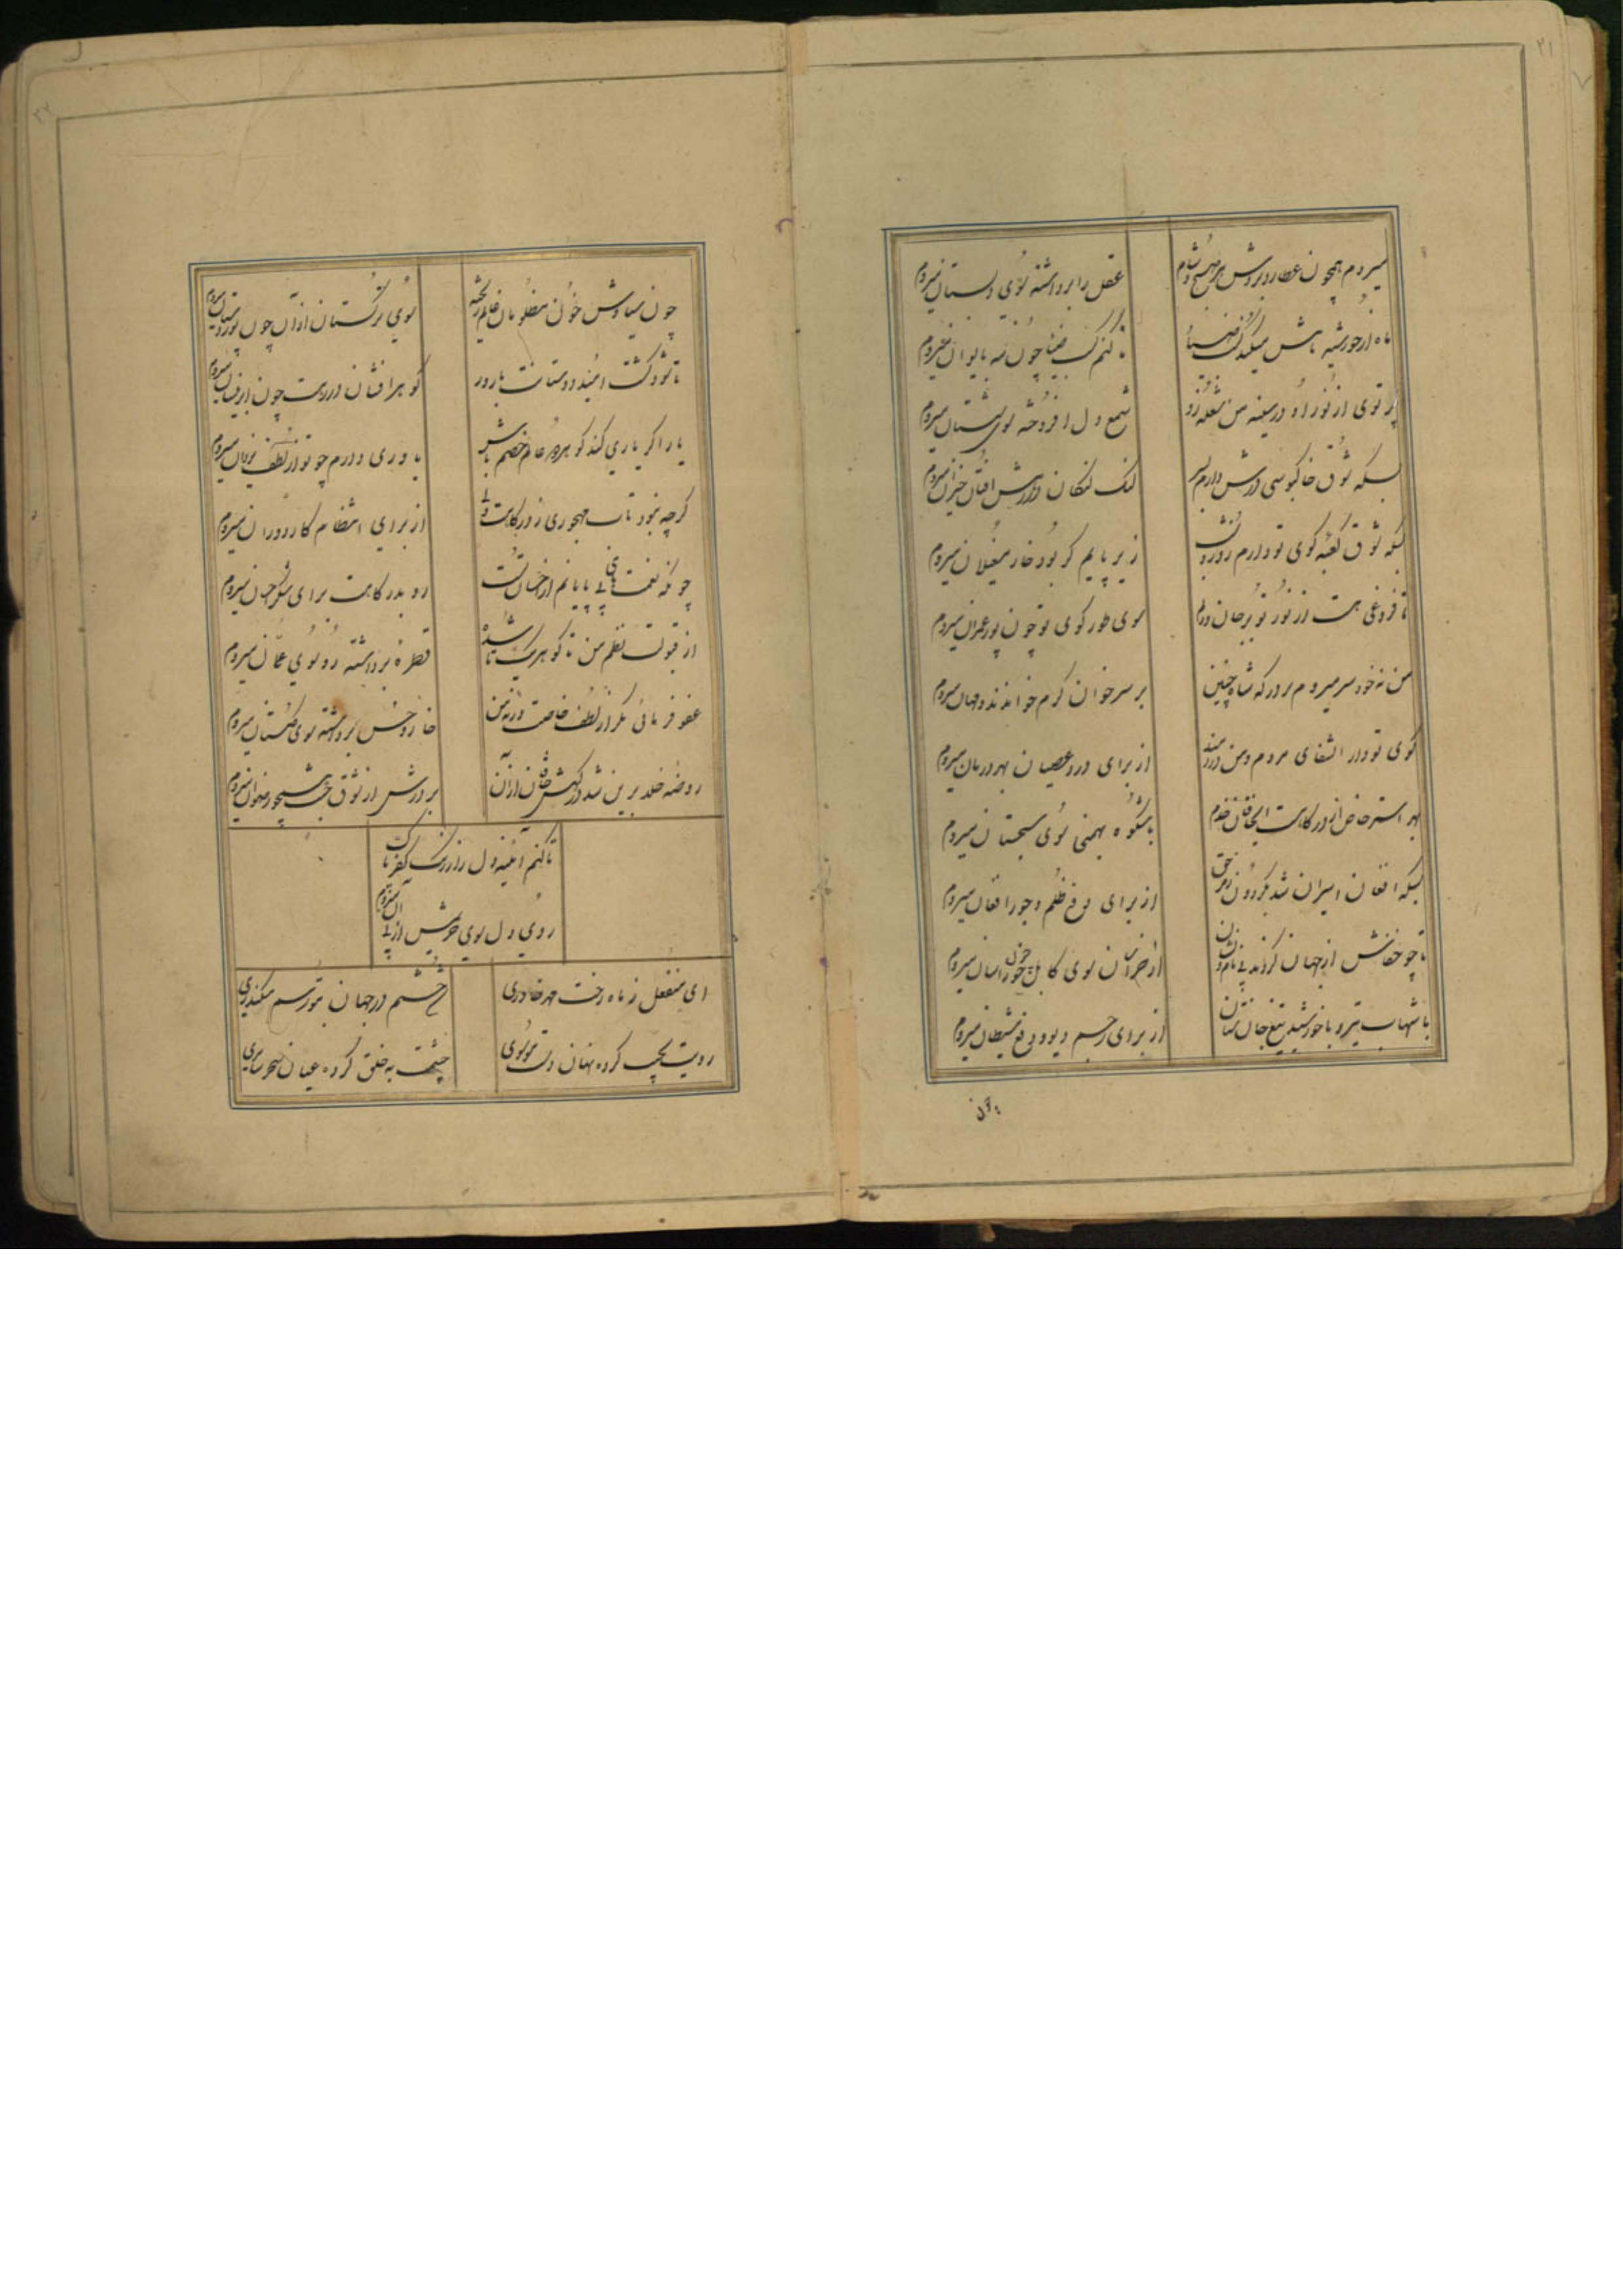 ۲۱
میروم همچون عطارد بر درش هر صبح و شام
عقل را برداشته سوی دبستان میروم
ماه از خورشید تابش میکند کسب ضیا
تا کنم کسب ضیا چون مه بایوان میروم
پرتوی از نور او در سینه من شعله زد
شمع دل افروخته سوی شبستان میروم
بسکه شوق خاکبوسی درش دارم بسر
لنگ لنگان در رهش افتان خیزان میروم
بسکه شوق کعبه کوی تو دارم روز و شب
زیر پایم گر بود خار مغیلان میروم
تا فروغی هست از نور تو بر جان و دلم
سوی طور کوی تو چون پور عمران میروم
من نه خود سر میروم بر درگه شاه چنین
بر سر خوان کرم خوانندد مهمان میروم
کوی تو دار الشفای مردم و من دردمند
از برای درد عصیان بهر درمان میروم
بهر استرخاص از درگاهت ای خاقان خدم
با شکوه بهمنی سوی سجستان میروم
بسکه افغان اسیران شد بگردون
از برای دفع ظلم و جور افغان میروم
تا چو خفاش از جهان گردند بی نام و نشان
از خراسان سوی کابل چون خور آسان میروم
با شهاب تیر و با خورشید تیغ جان ستان
از برای رجم دیو و دفع شیطان میروم
چون سیاوش خون مظلومان ظالم ریخته
سوی ترکستان از آن چون پور دستان میروم
تا شود کشت امید دوستانت بارور
گوهر افشان در رهت چون ابر نیسان میروم
یار اگر یاری کند گو هر دو عالم خصم باش
یاوری دارم چو تو از لطف یزدان میروم
گرچه نبود تاب مهجوری ز درگاهت ولی
از برای انتظام کار دوران میروم
چونکه نعمت های بی پایانم از احسان تست
رو بدرگاهت برای شکر احسان میروم
از قبولت نظم من تا گوهری شد
قطره برداشته رو سوی عمان میروم
عفو فرمائی مگر از لطف خاصت ورنه من
خار و خس برداشته سوی گلستان میروم
روضه خلد برین شد درگهش خاقان از آن
بر درش از شوق جنت همچو رضوان میروم
تا کنم آئینه دل را ز زنگ کفر پاک
روی دل سوی خویش از پی میروم
ای منفعل ز ماه رخت مهر خاوری
ختم در جهان بتو رسم سکندری
رویت بحجب کرده نهان
چشمت به خلق کرده عیان سحر سامری